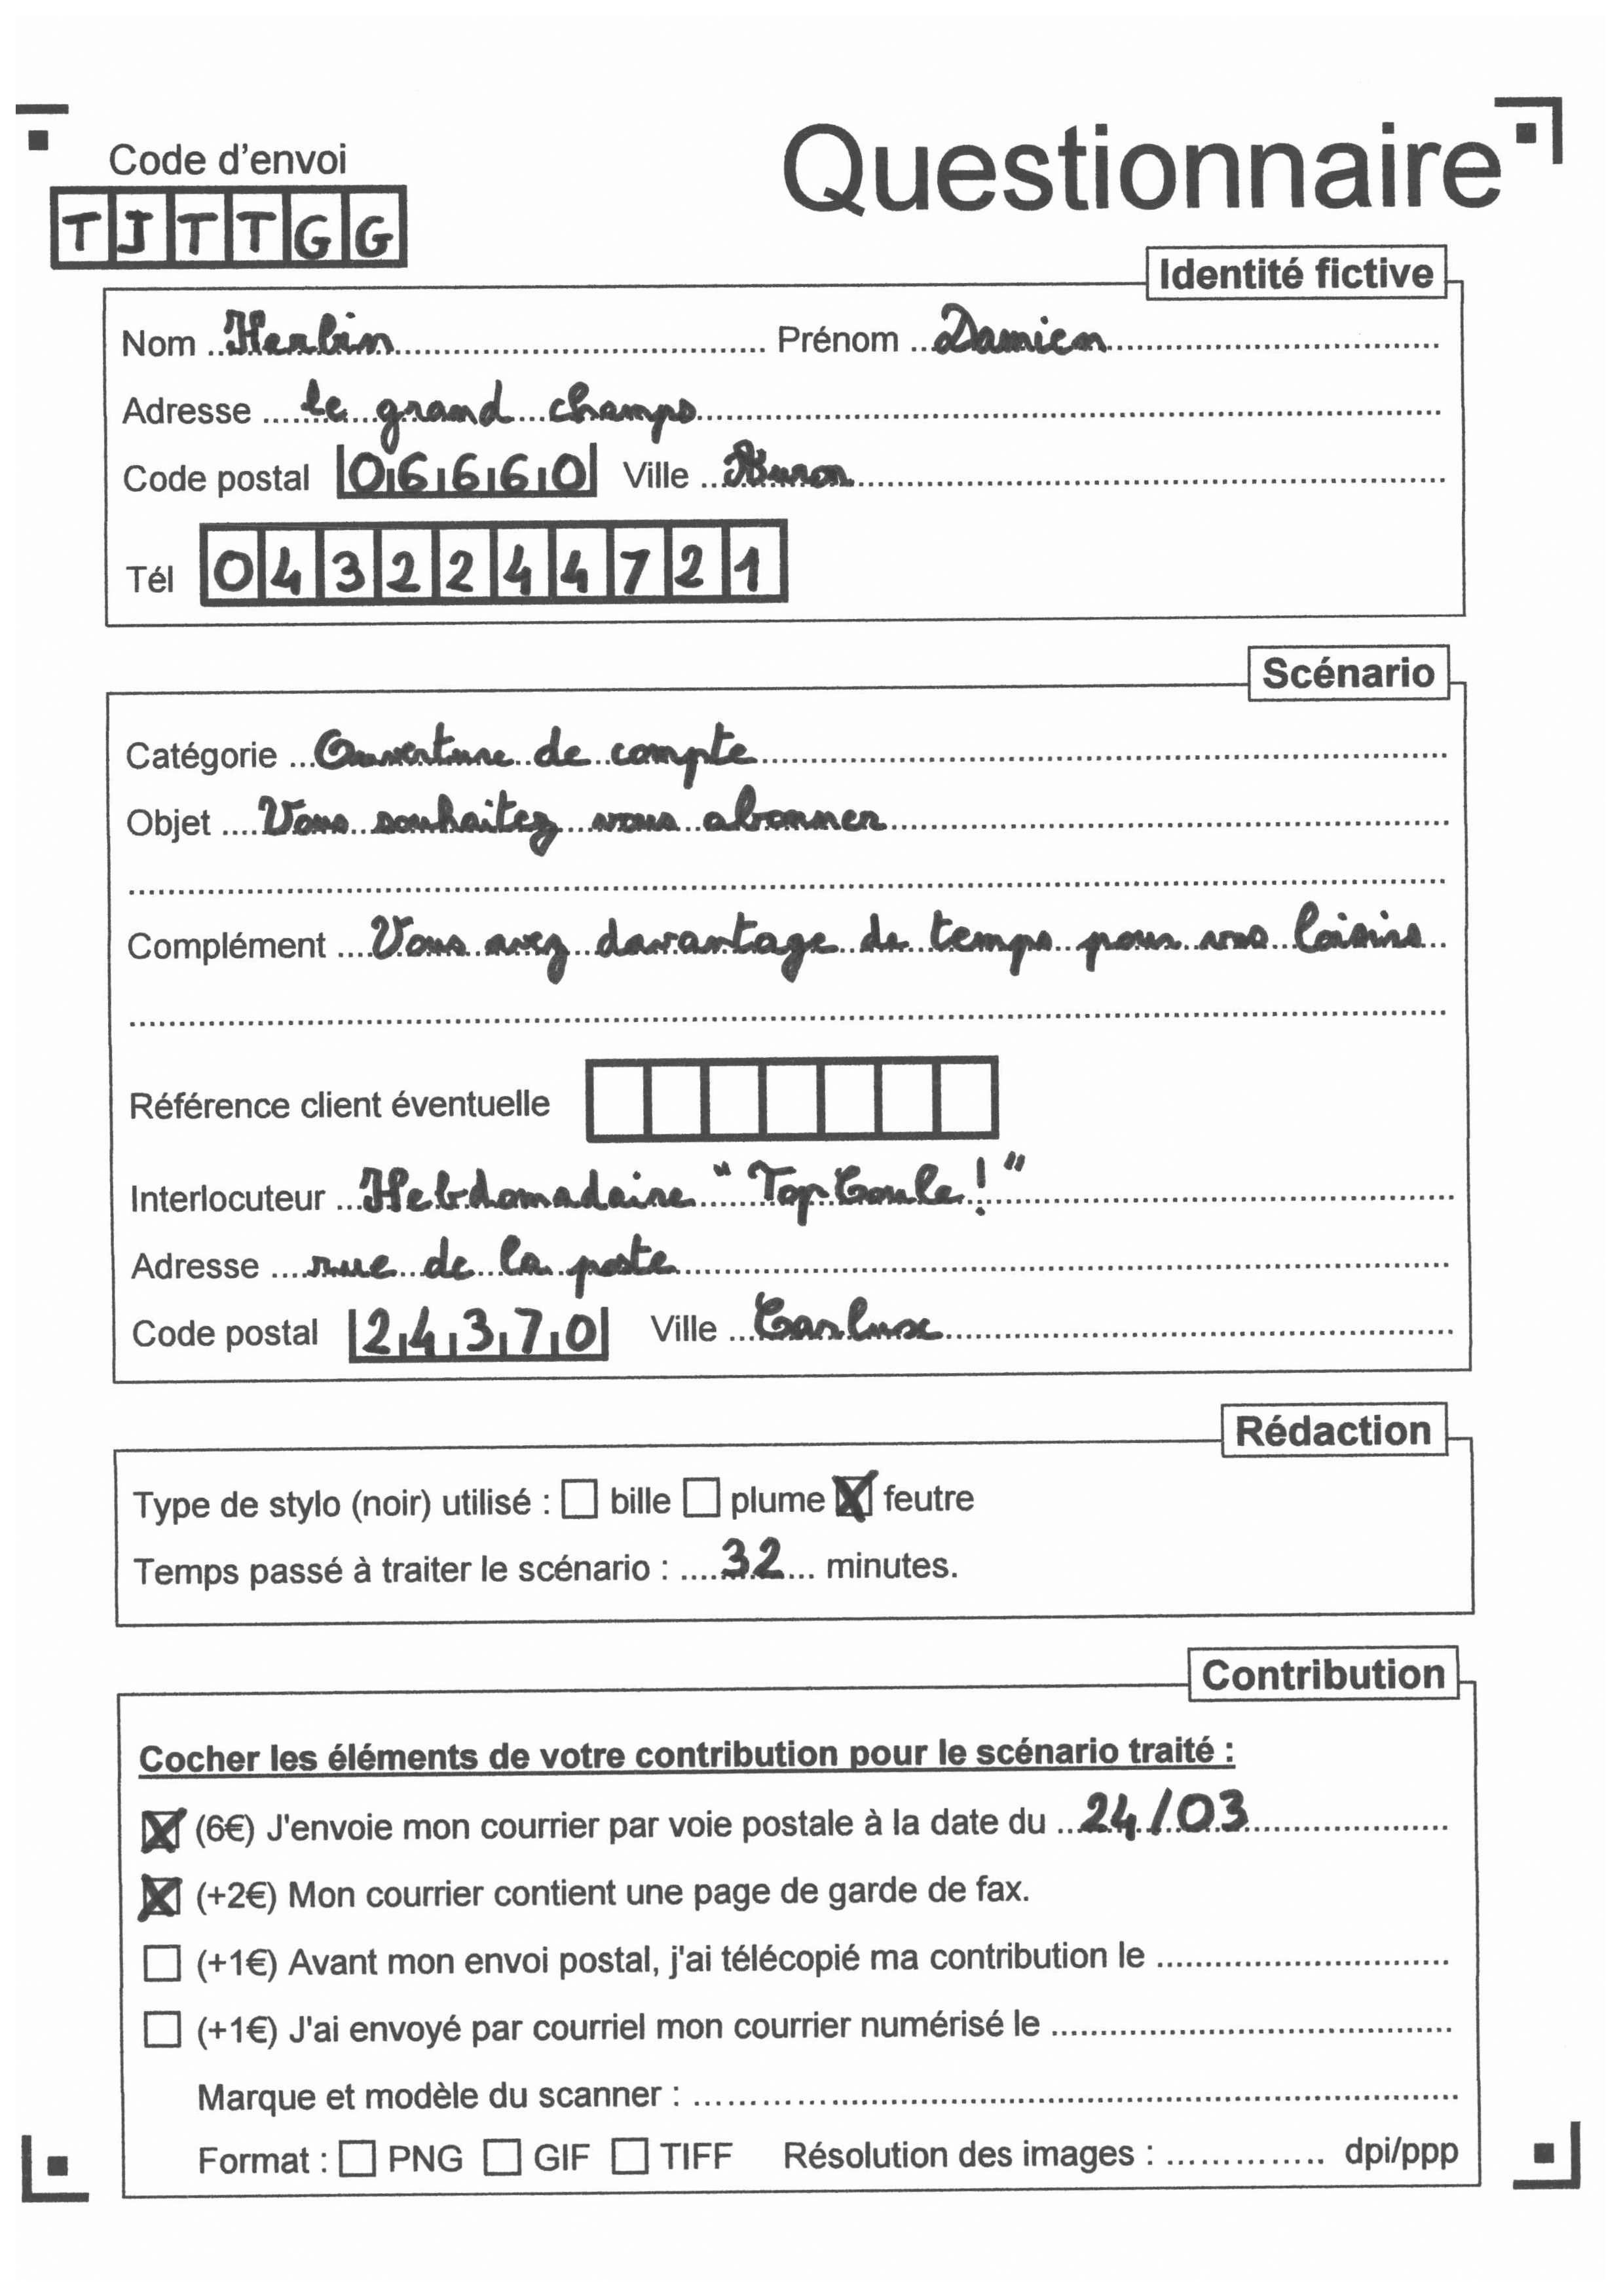 Code d'envoi
TJTTGG
Questionnaire
Identité fictive
Nom Herbin Prénom Damien
Adresse le grand champs
Code postal 06660 Ville
Tél 0432244721
Scénario
Catégorie Ouverture de compte
Objet Vous souhaitez vous abonner
Complément Vous avez davantage de temps pour vos loisirs
Référence client éventuelle
Interlocuteur Hebdomadaire "Top Coule!"
Adresse rue de la poste
Code postal 24370 Ville Carlux
Rédaction
Type de stylo (noir) utilisé : bille plume feutre
Temps passé à traiter le scénario : 32 minutes.
Contribution
Cocher les éléments de votre contribution pour le scénario traité :
(6€) J'envoie mon courrier par voie postale à la date du 24/03
(+2€) Mon courrier contient une page de garde de fax.
(+1€) Avant mon envoi postal, j'ai télécopié ma contribution le
(+1€) J'ai envoyé par courriel mon courrier numérisé le
Marque et modèle du scanner :
Format : PNG GIF TIFF Résolution des images : dpi/ppp